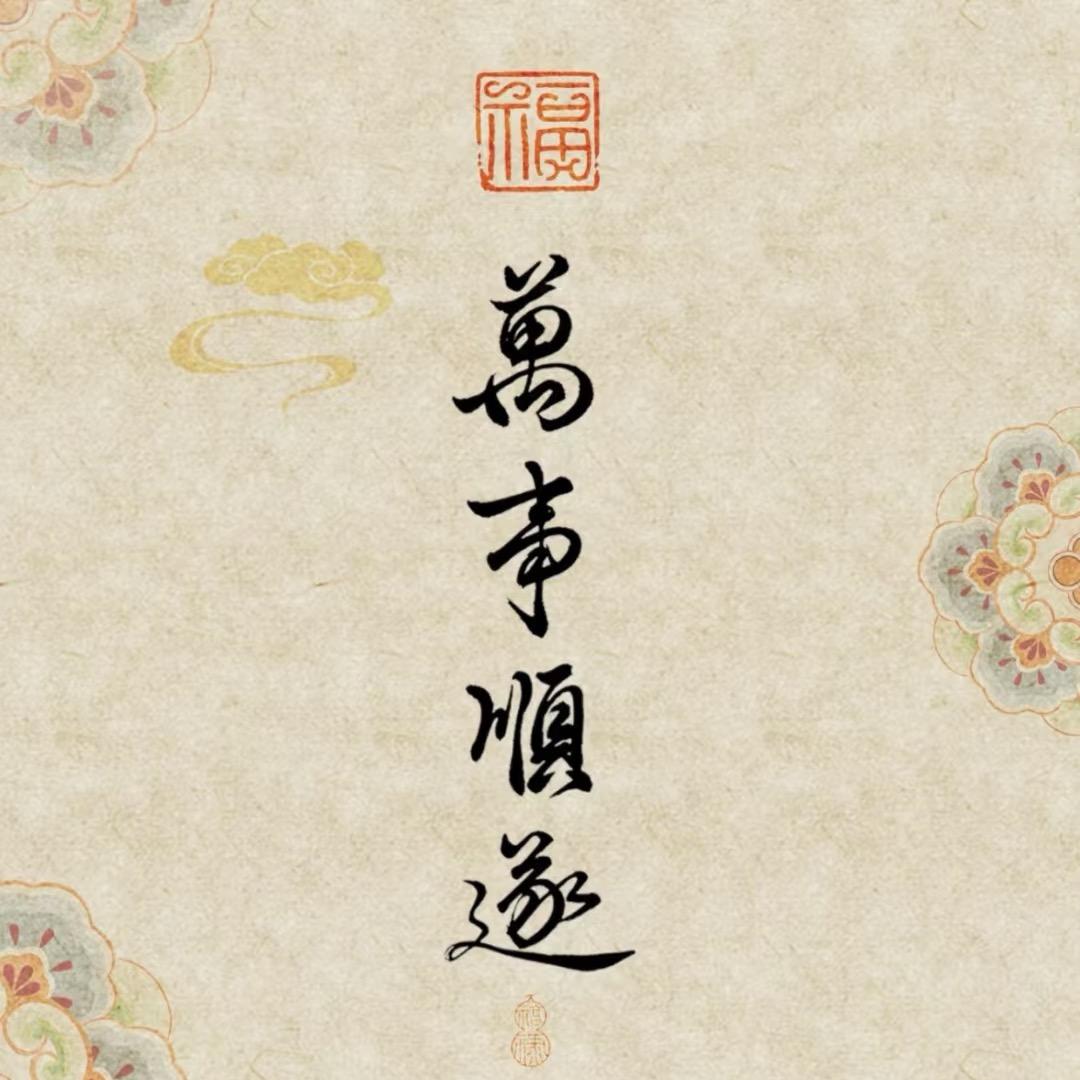 福
萬
事
順
遂